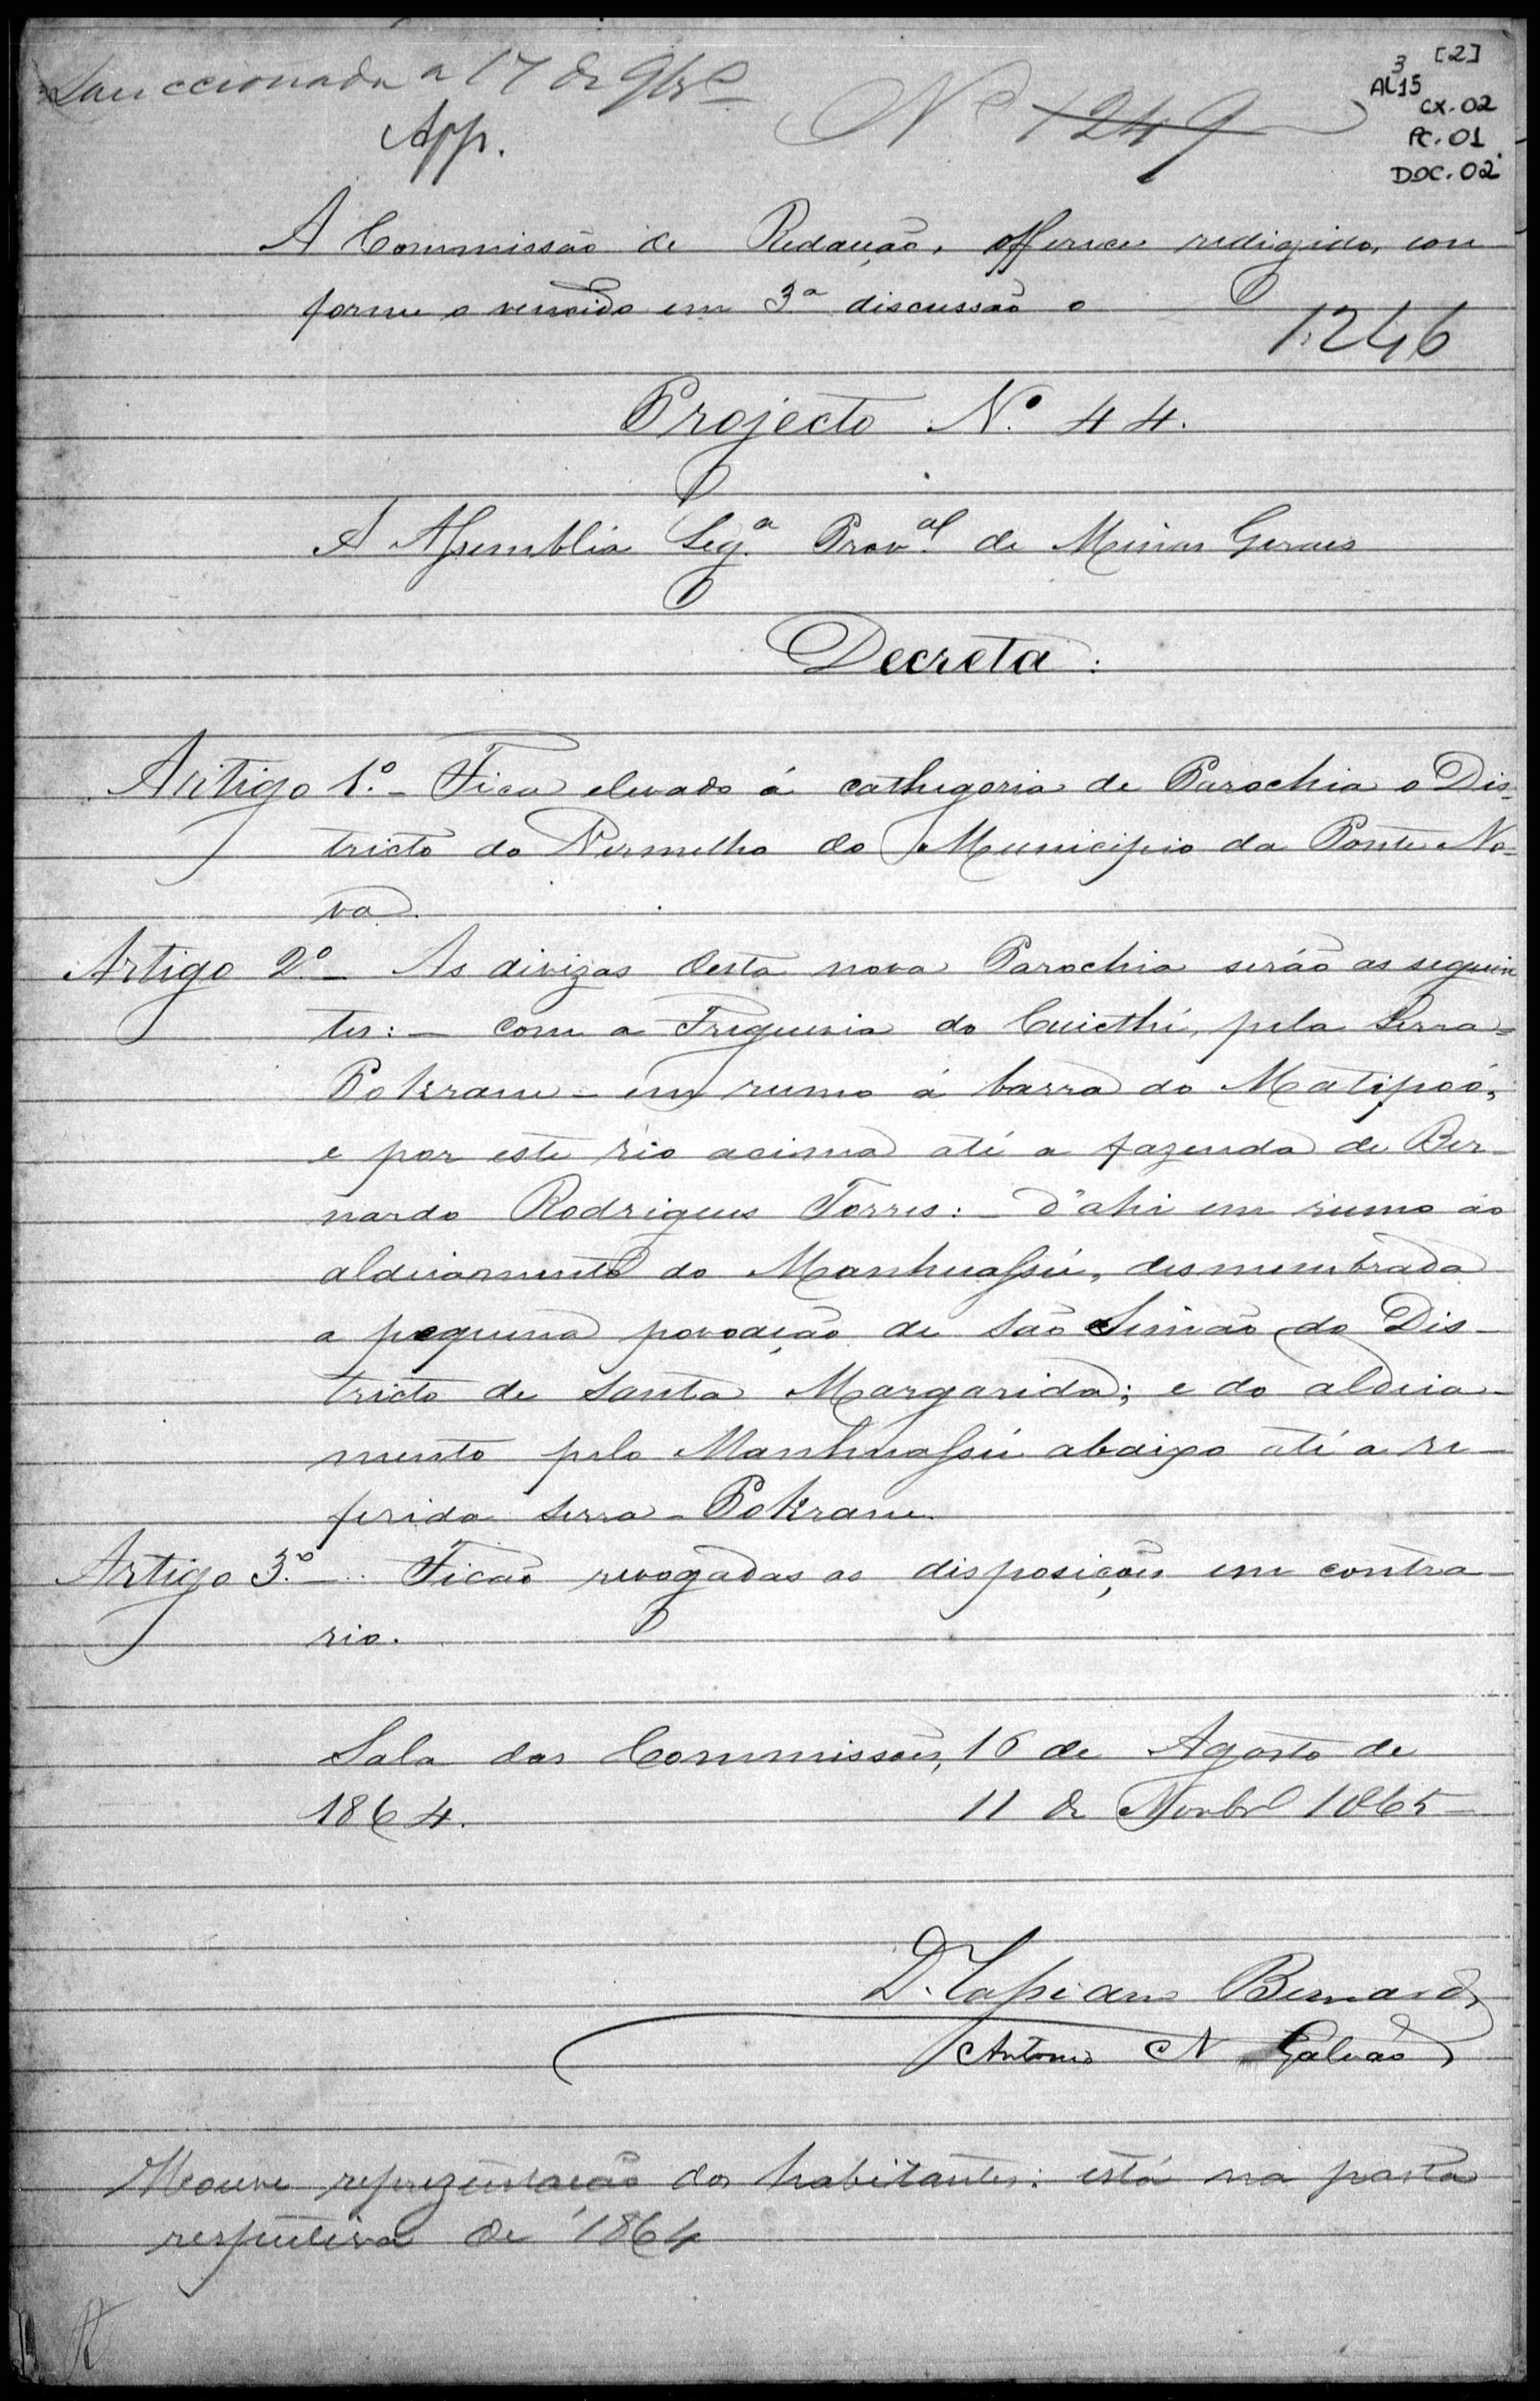 Sanccionada a 17 de 9br.º
App.
Nº 1249
[2]
3
AL15
CX. 02
PC. 01
DOC. 02
A Commissão de Redacção, offerece redigido, con
forme o vencido em 3ª discussão o
1.246
Projecto Nº 44.
A Assemblia Leg.ª Prov.al de Minas Geraes
Decreta:
Artigo 1º. - Fica elevado á cathegoria de Parochia o Dis-
tricto do Vermelho do Municipio da Ponte No-
va.
Artigo 2º - As divizas desta nova Parochia serão as seguin
tes: - com a Freguesia do Cuiethé, pela Serra =
Pokrane - em rumo á barra do Matipoó,
e por este rio acima até a fazenda de Ber-
nardo Rodrigues Torres: - d'ahi em rumo ao
aldeiamento do Manhuassú, desmembrada
a pequena povoação de São Simão do Dis-
tricto de Santa Margarida; e do aldeia-
mento pelo Manhuassú abaixo até a re-
ferida serra - Pokrane.
Artigo 3º. - Ficão revogadas as disposições em contra-
rio.
Sala das Commissões, 16 de Agosto de
1864. 11 de Novbr.º 1865
D. Cassiano Bernardo
Antonio N Galvão
Houve reprezentação dos habitantes: está na pasta
respectiva de 1864